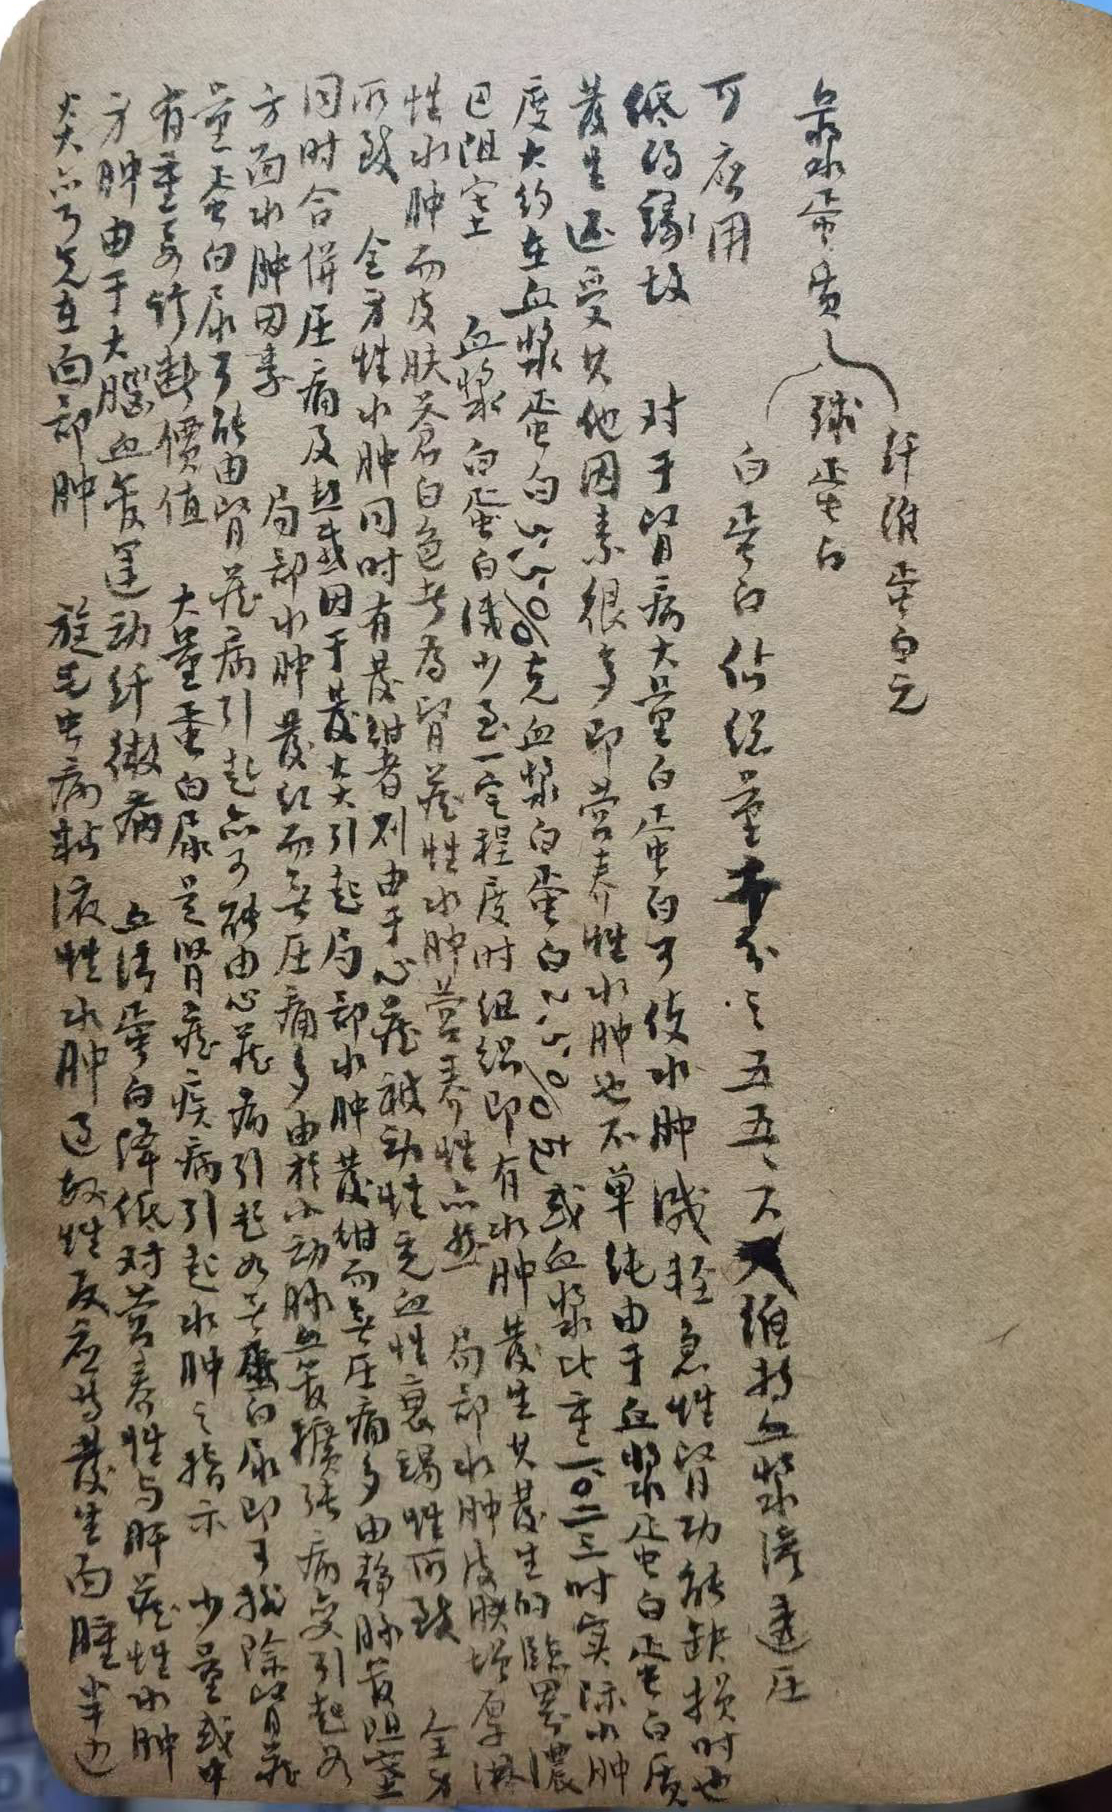 纤维蛋白元
血浆蛋质 球蛋白
白蛋白佔总量十分之五五、六 维持血浆渗透压
可应用
对于肾病大量白蛋白可使水肿减轻急性肾功能缺损时也
低的缘故
发生还受其他因素很多即营养性水肿也不单纯由于血浆蛋白蛋白质
度大约在血浆蛋白5.5%克血浆白蛋白2.5%或血浆比重一.〇二三时实际水肿
巴阻塞 血浆白蛋白减少至一定程度时组织即有水肿发生其发生的临界浓
性水肿而皮肤苍白色者为肾藏性水肿营养性亦然 局部水肿皮肤增厚淋
所致 全身性水肿同时有发绀者则由于心藏被动性充血性衰竭性所致 全身
同时合併压痛及红或因于发炎引起局部水肿发绀而无压痛多由静脉管阻塞
方面水肿因素 局部水肿发红而无压痛多由于小动脉血管扩张病变引起如
量蛋白尿可能由肾藏病引起亦可能由心藏病引起如无蛋白尿即可排除肾藏
有重要诊断价值 大量蛋白尿是肾藏疾病引起水肿之指示 少量或中
身肿由于大脑血管运动纤微病 血清蛋白降低对营养性与肝藏性水肿
炎亦可先在面部肿 旋毛虫病粘液性水肿过敏性反应等发生面肿半边